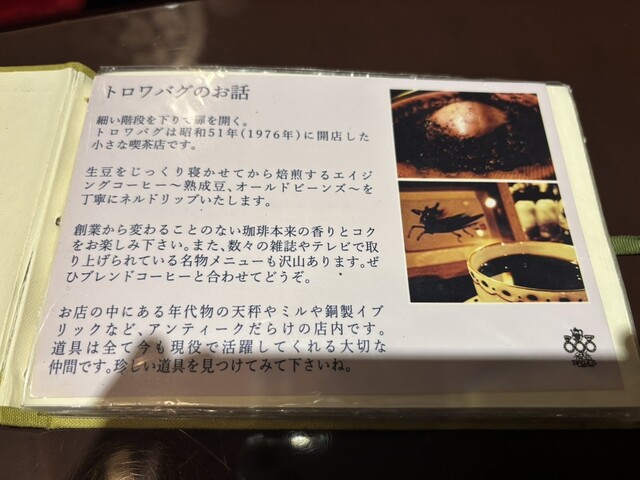 トロワバグのお話
細い階段を下りて扉を開く。
トロワバグは昭和51年(1976年)に開店した
小さな喫茶店です。
生豆をじっくり寝かせてから焙煎するエイジ
ングコーヒー〜熟成豆、オールドビーンズ〜を
丁寧にネルドリップいたします。
創業から変わることのない珈琲本来の香りとコク
をお楽しみ下さい。また、数々の雑誌やテレビで取
り上げられている名物メニューも沢山あります。ぜ
ひブレンドコーヒーと合わせてどうぞ。
お店の中にある年代物の天秤やミルや銅製イブ
リックなど、アンティークだらけの店内です。
道具は全て今も現役で活躍してくれる大切な
仲間です。珍しい道具を見つけてみて下さいね。